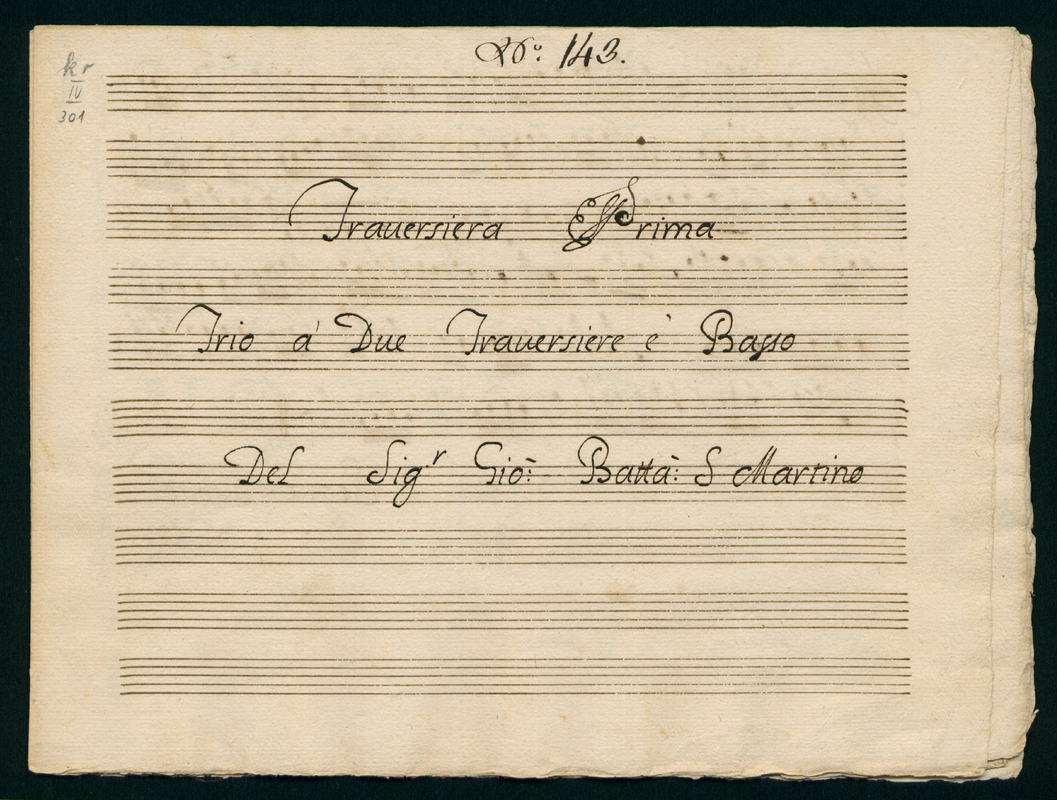 No: 143.
kr
IV
301
Trauersiera Prima
Trio á Due Trauersiere è Basso
Del Sigr Gio: Batta: S Martino